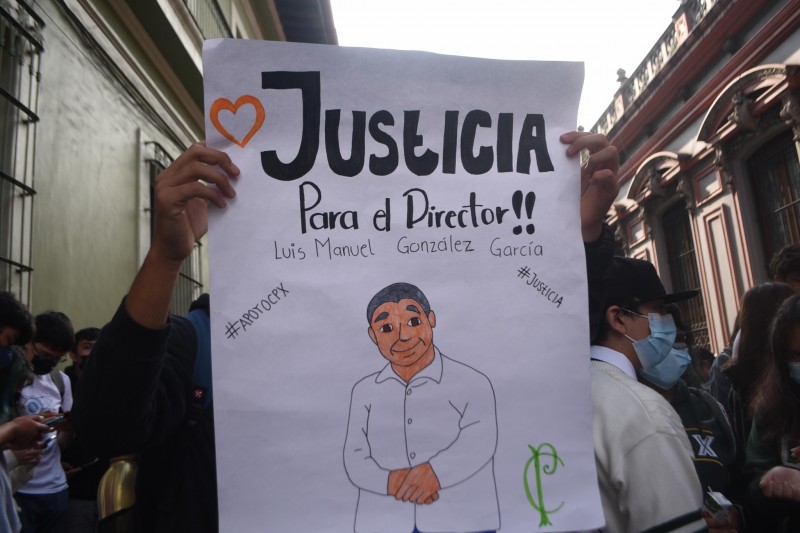 Justicia
Para el Director!!
Luis Manuel González García
#Justicia
#APOYOCPX
CP
X